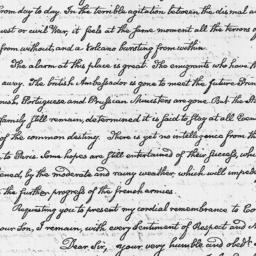 from day to day. In the terrible agitation between the dismal a
uest or civil War, it feels at the same moment all the terrors of
from without, and a Volcano bursting from within.
The alarm at this place is great. The emigrants who have
away. The British Ambassador is gone to meet the future Prin
Portuguese and Prussian Ministers are gone. But the
family still remain, determined it is said to stay at all Even
of the common destiny. There is yet no intelligence from th
to Paris. Some hopes are still entertained of their success, wh
ened, by the moderate and rainy weather, which will imped
the further progress of the french armies.
Requesting you to present my cordial remembrance to Co
our Son, I remain, with every Sentiment of Respect and
Dear Sir, your very humble and obedt.